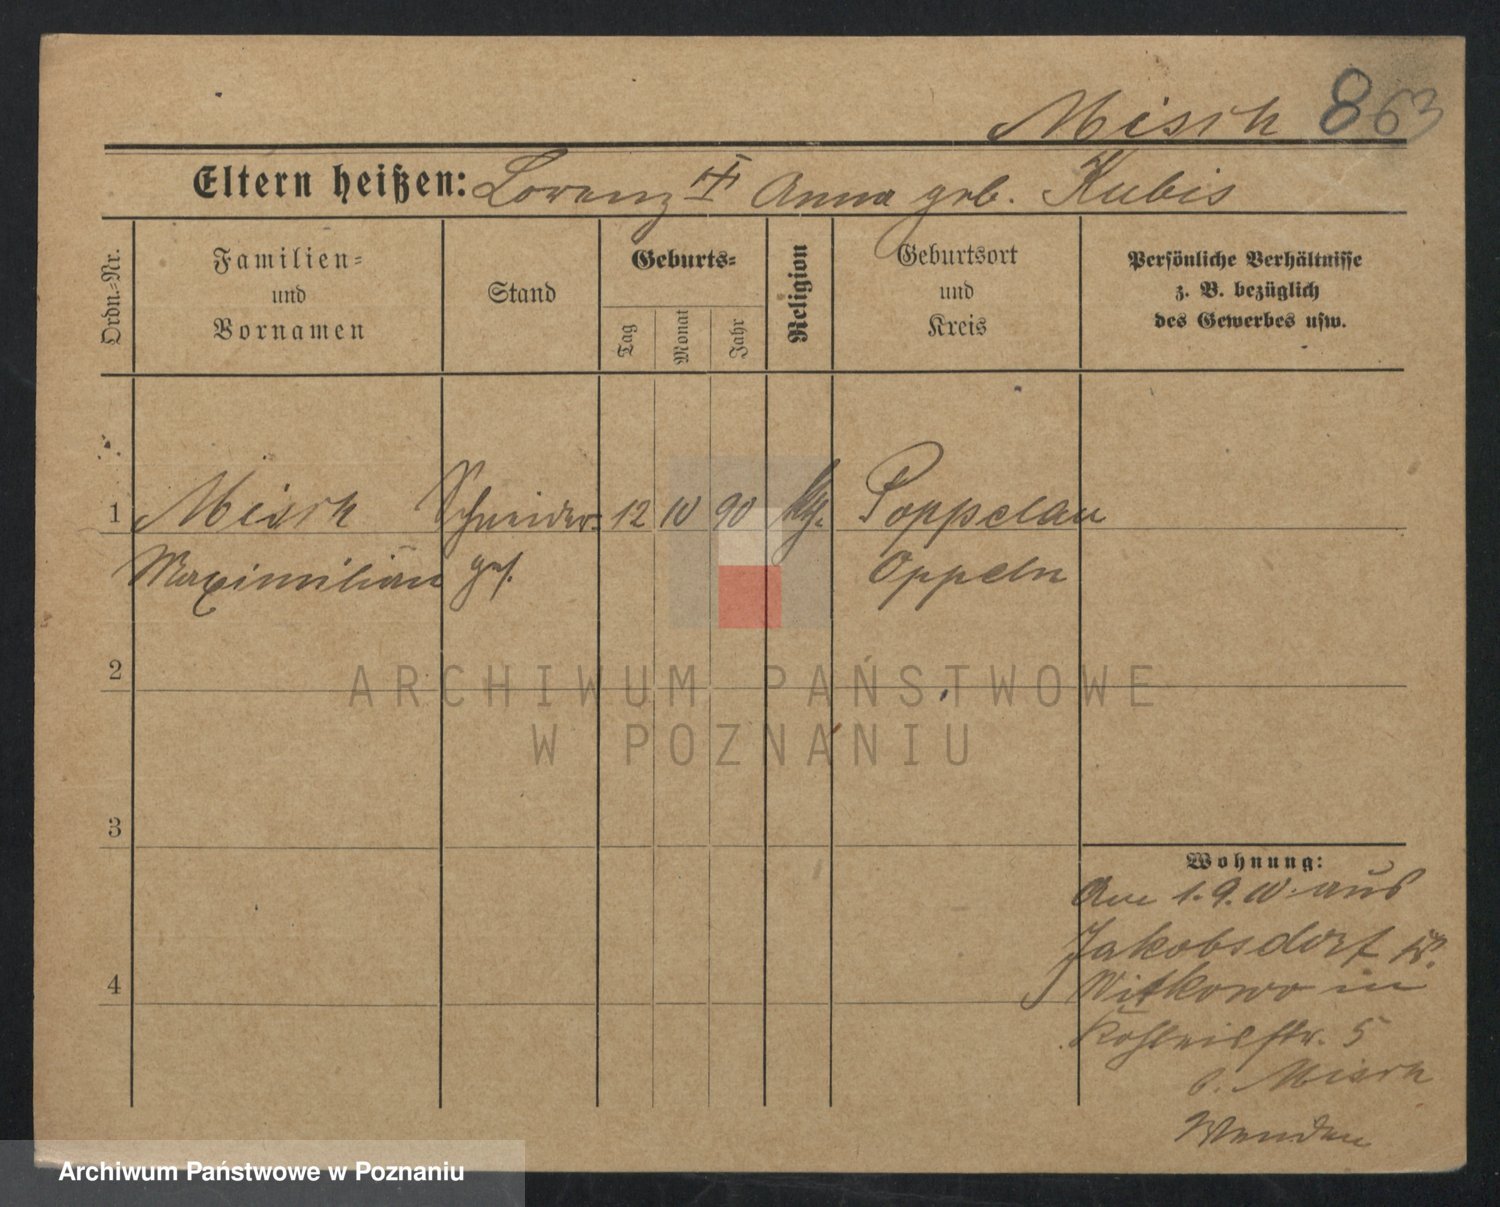 Misch 863
Eltern heißen: Lorenz Anna geb. Kubis
Ordn.-Nr.
Familien-
und
Vornamen
Stand
Geburts-
Tag
Monat
Jahr
Religion
Geburtsort
und
Kreis
Persönliche Verhältnisse
z. B. bezüglich
des Gewerbes usw.
1 Misch Schneider- 12 10 90 Poppelau
Maximilian ges. Oppeln
2
ARCHIWUM PAŃSTWOWE
W POZNANIU
3
Wohnung:
Am 1.9.10 aus
Jakobsdorf
4
Witkowo in
str. 5
b. Misch
Archiwum Państwowe w Poznaniu